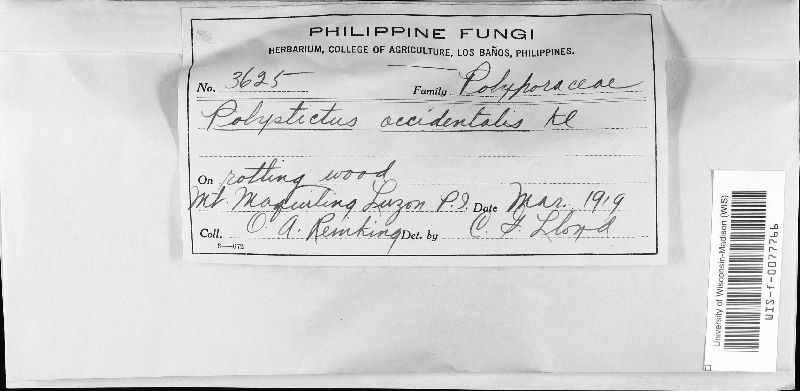 PHILIPPINE FUNGI
HERBARIUM, COLLEGE OF AGRICULTURE, LOS BAÑOS, PHILIPPINES.
No. 3625 Family Polyporaceae
Polystictus occidentalis Kl
On rotting wood
Mt. Maquiling Luzon P.I. Date Mar. 1919
Coll. O. A. Reinking Det. by C. G. Lloyd
S—672
University of Wisconsin-Madison (WIS)
WIS-f-0077766